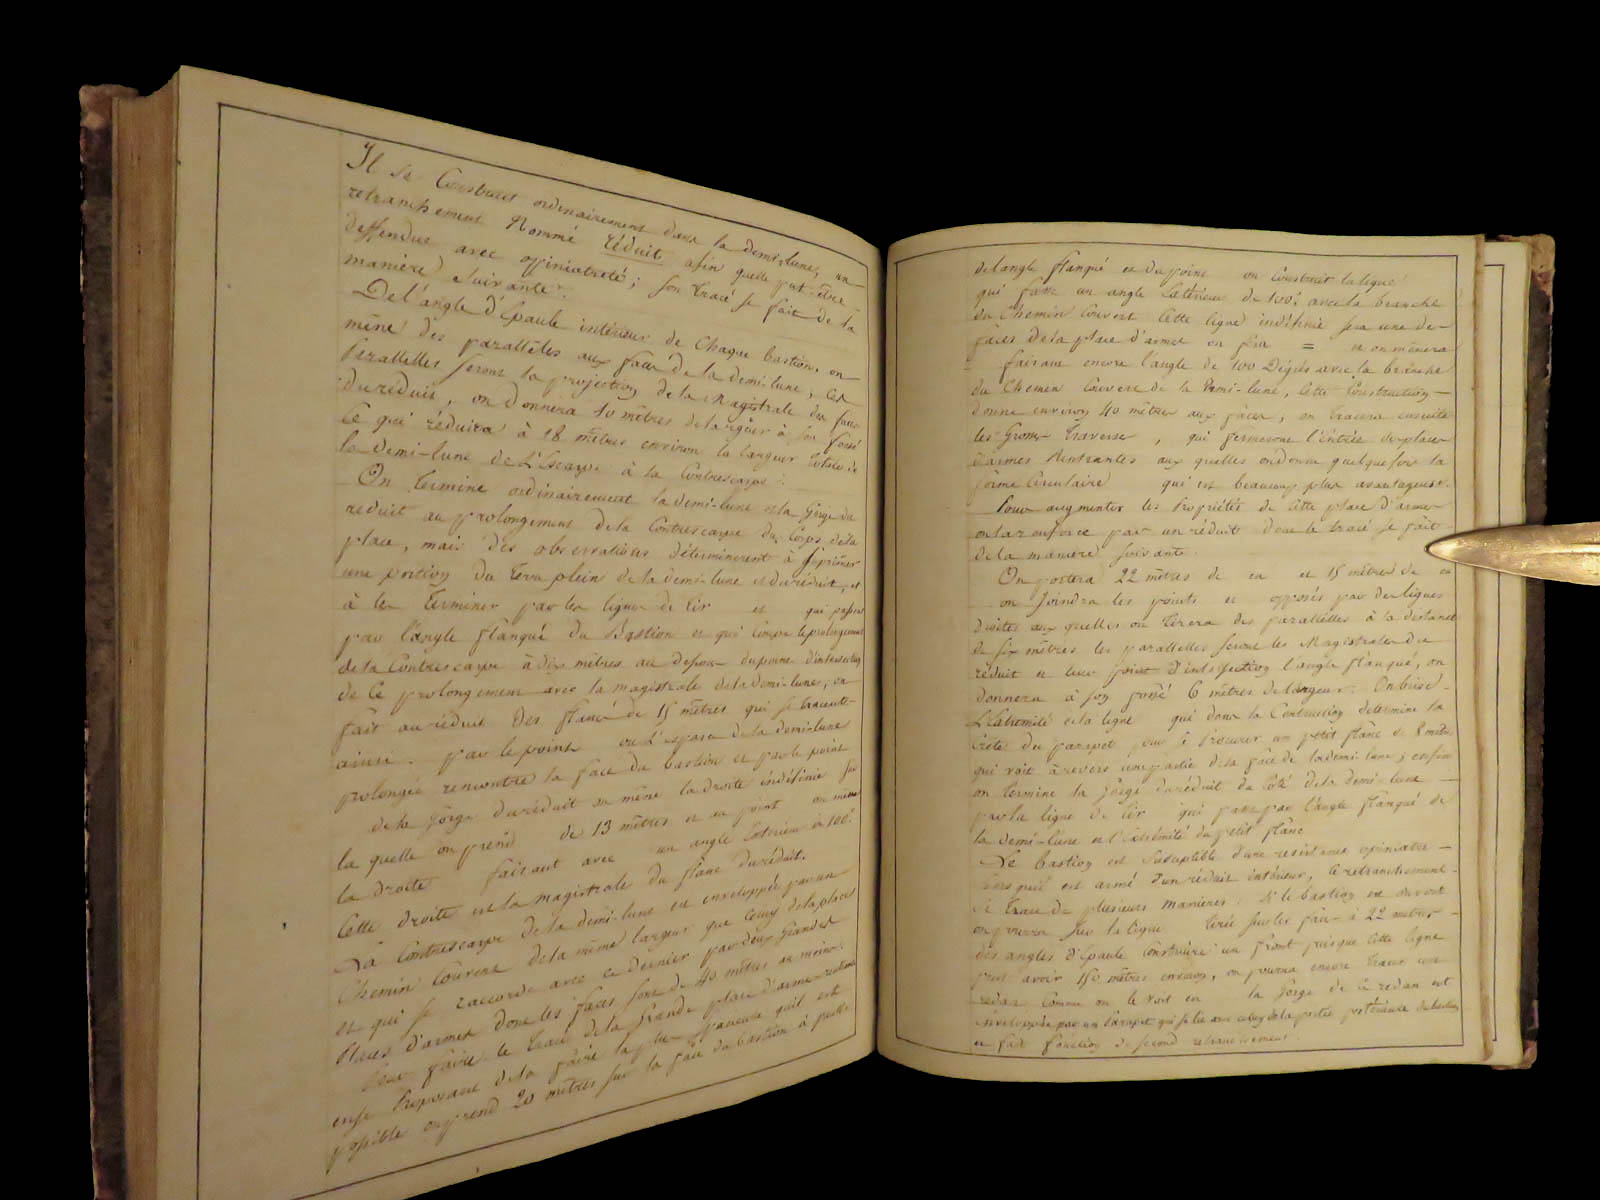 Il se Construit ordinairement dans la demi-lune, un
retranchement Nommé réduit afin quelle put-être
deffendue avec opiniatreté; son tracé se fait de la
manière suivante:
De l'angle d'Epaule intérieur de Chaque bastion, on
mène des parallèles aux faces de la demi-lune, Ces
Parallelles seront la projection de la Magistrale des faces
du réduit, on donnera 10 mètres de largeur à son fossé
Ce qui réduira à 18 mètres environ la largeur totale de
la demi-lune de L'Escarpe à la Contrescarpe.
On termine ordinairement la demi-lune et la Gorge du
reduit au prolongement de la Contrescarpe du Corps de la
place, mais des observations déterminèrent à suprimer
une portion du terre plein de la demi-lune et du réduit, et
à les Terminer par les lignes de tir et qui passent
par l'angle flanqué du Bastion et qui Coupe le prolongement
de la Contrescarpe à dix mètres au dessous du point d'intersection
de Ce prolongement avec la magistrale de la demi-lune, on
fait au réduit des flancs de 15 mètres qui se tracent
ainsi. par le point ou L'Escarpe de la demi-lune
prolongée rencontre la face du bastion et par le point
de la Gorge du réduit on mène la droite indéfinie sur
la quelle on prend de 13 mètres et au point on mène
la droite faisant avec un angle Extérieur de 100°.
Cette droite est la magistrale du flanc du réduit.
La Contrescarpe de la demi-lune est enveloppée par un
Chemin Couvert de la même largeur que Celuy de la place
et qui se raccorde avec ce dernier par deux grandes
Places d'armes dont les faces sont de 40 mètres au moins.
Pour faire le tracé de la Grande place d'armes rentrante
on se Proposant de la faire la plus spacieuse qu'il est
possible on prend 20 mètres sur la face du bastion à partir
de l'angle flanqué et du point on Construit la ligne
qui fasse un angle Extérieur de 100° avec la branche
du Chemin Couvert Cette ligne indéfinie sera une des
faces de la place d'armes on fera = et on mènera
faisant encore l'angle de 100 Dégrés avec la branche
du Chemin Couvert de la Demi-lune, Cette Construction
donne environ 40 mètres aux faces, on tracera ensuite
les Grosses Traverses, qui fermeront l'Entrée des places
d'armes Rentrantes aux quelles on donne quelquefois la
forme Circulaire qui est beaucoup plus avantageuse.
Pour augmenter les Propriétés de Cette place d'armes
on la renforce par un réduit dont le tracé se fait
de la manière suivante.
On portera 22 mètres de en et 15 mètres de en
on Joindra les points et opposés par des lignes
droites aux quelles on tirera des parallèlles à la distance
de six mètres les parallelles seront les Magistrales du
réduit et leur point d'intersection l'angle flanqué, on
donnera à son fossé 6 mètres de largeur. On brise
L'Extrémité de la ligne qui dans la Contruction détermine la
Crête du parapet pour se Procurer un petit flanc de 8 mètres
qui voit à revers une partie de la face de la demi-lune; enfin
on termine la Gorge du réduit du Côté de la demi-lune
par la ligne de tir qui passe par l'angle flanqué de
la demi-lune et l'éxtrémité du petit flanc
Le bastion est Suseptible d'une resistance opiniatre
lors qu'il est armé d'un réduit intérieur, le retranchement
se trace de plusieurs manières. Si le bastion est ouvert
on pourra sur la ligne tirée sur les faces à 22 mètres
des angles d'Epaule Construire un front puisque Cette ligne
peut avoir 150 mètres environ, on pourra encore tracer un
redan Comme on le voit en la Gorge de Ce redan est
enveloppée par un Parapet qui se lie avec celuy de la partie postérieure du bastion
et fait fonction de second retranchement.